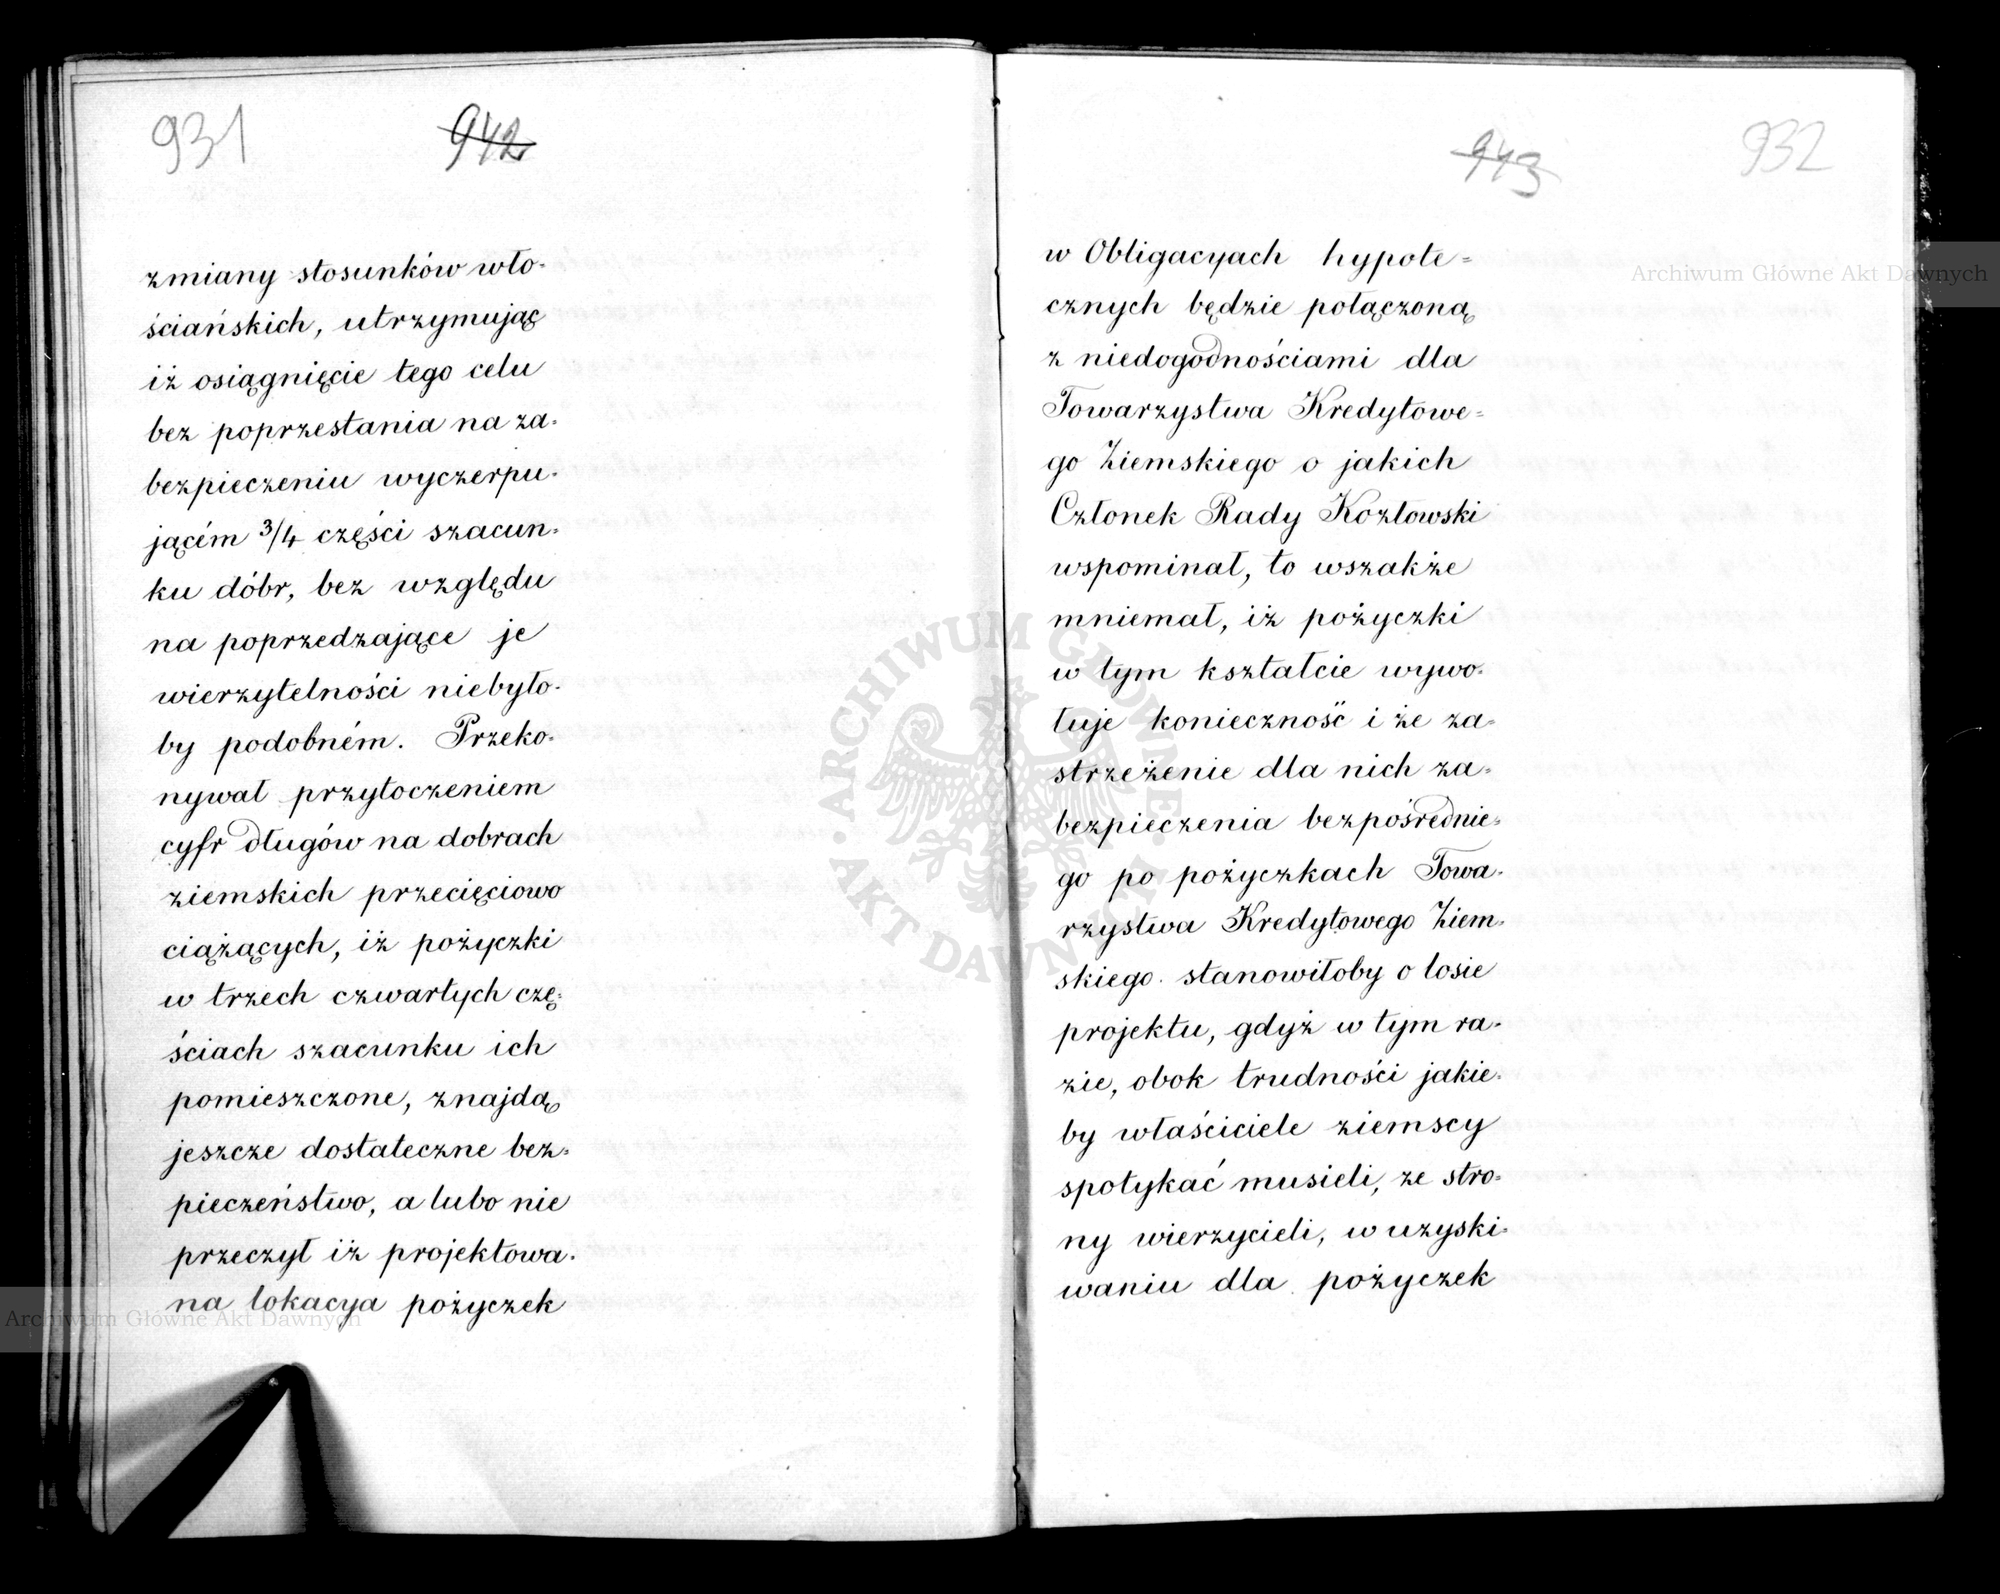 931 942
zmiany stosunków wło-
ściańskich, utrzymując
iż osiągnięcie tego celu
bez poprzestania na za-
bezpieczeniu wyczerpu-
jącém 3/4 części szacun-
ku dóbr, bez względu
na poprzedzające je
wierzytelności niebyło-
by podobném. Przeko-
nywał przytoczeniem
cyfr długów na dobrach
ziemskich przecięciowo
ciążących, iż pożyczki
w trzech czwartych czę-
ściach szacunku ich
pomieszczone, znajdą
jeszcze dostateczne bez-
pieczeństwo, a lubo nie
przeczył iż projektowa-
na lokacya pożyczek
943 932
w Obligacyach hypote-
cznych będzie połączoną
z niedogodnościami dla
Towarzystwa Kredytowe-
go Ziemskiego o jakich
Członek Rady Kozłowski
wspominał, to wszakże
mniemał, iż pożyczki
w tym kształcie wywo-
łuje konieczność i że za-
strzeżenie dla nich za-
bezpieczenia bezpośrednie-
go po pożyczkach Towa-
rzystwa Kredytowego Ziem-
skiego stanowiłoby o losie
projektu, gdyż w tym ra-
zie, obok trudności jakie-
by właściciele ziemscy
spotykać musieli, ze stro-
ny wierzycieli, w uzyski-
waniu dla pożyczek
Archiwum Główne Akt Dawnych
Archiwum Główne Akt Dawnych
ARCHIWUM GŁÓWNE AKT DAWNYCH